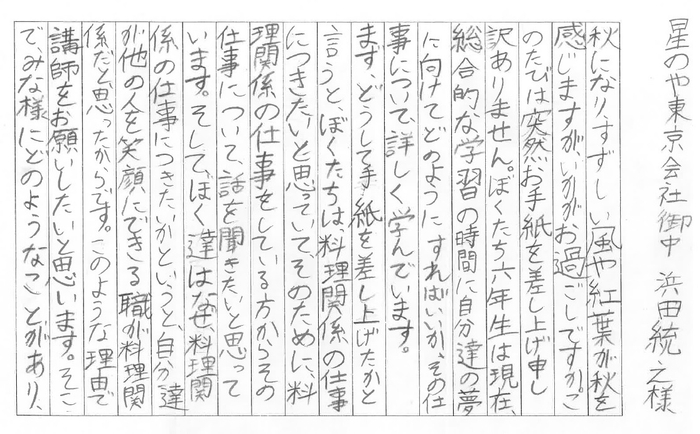 星のや東京会社御中 浜田統之様
秋になり、すずしい風や紅葉が秋を
感じますが、いかがお過ごしですか。こ
のたびは突然お手紙を差し上げ申し
訳ありません。ぼくたち六年生は現在、
総合的な学習の時間に自分達の夢
に向けてどのようにすればいいか、その仕
事について、詳しく学んでいます。
まず、どうして手紙を差し上げたかと
言うと、ぼくたちは、料理関係の仕事
につきたいと思っていて、そのために、料
理関係の仕事をしている方からその
仕事について、話を聞きたいと思って
います。そして、ぼく達はなぜ、料理関
係の仕事につきたいかというと、自分達
が他の人を笑顔にできる職が料理関
係だと思ったからです。このような理由で
講師をお願いしたいと思います。そこ
で、みな様にどのようなことがあり、